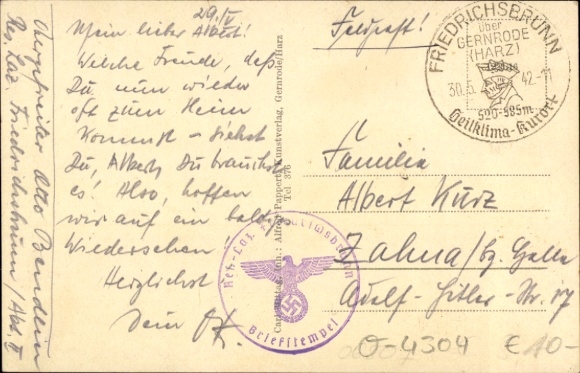 29./V
Mein lieber Albert!
Welche Freude, daß
Du nun wieder
oft zum Heim
kommst – siehst
Du, Albert, Du brauchst
es! Also, hoffen
wir auf ein baldiges
Wiedersehen
Herzlichst
Dein
Obergefreiter Otto Bendlein
Res. Laz. Friedrichsbrunn / Abt. II
Gernrode/Harz
Feldpost!
FRIEDRICHSBRUNN
über
GERNRODE
(HARZ)
30.5. 42.-11
520-585m
Heilklima-Kurort
Familie
Albert Kurz
Zahna/bz. Halle
Adolf-Hitler-Str. 17
Res.-Laz. Friedrichsbrunn
Briefstempel
O-4304 €10-